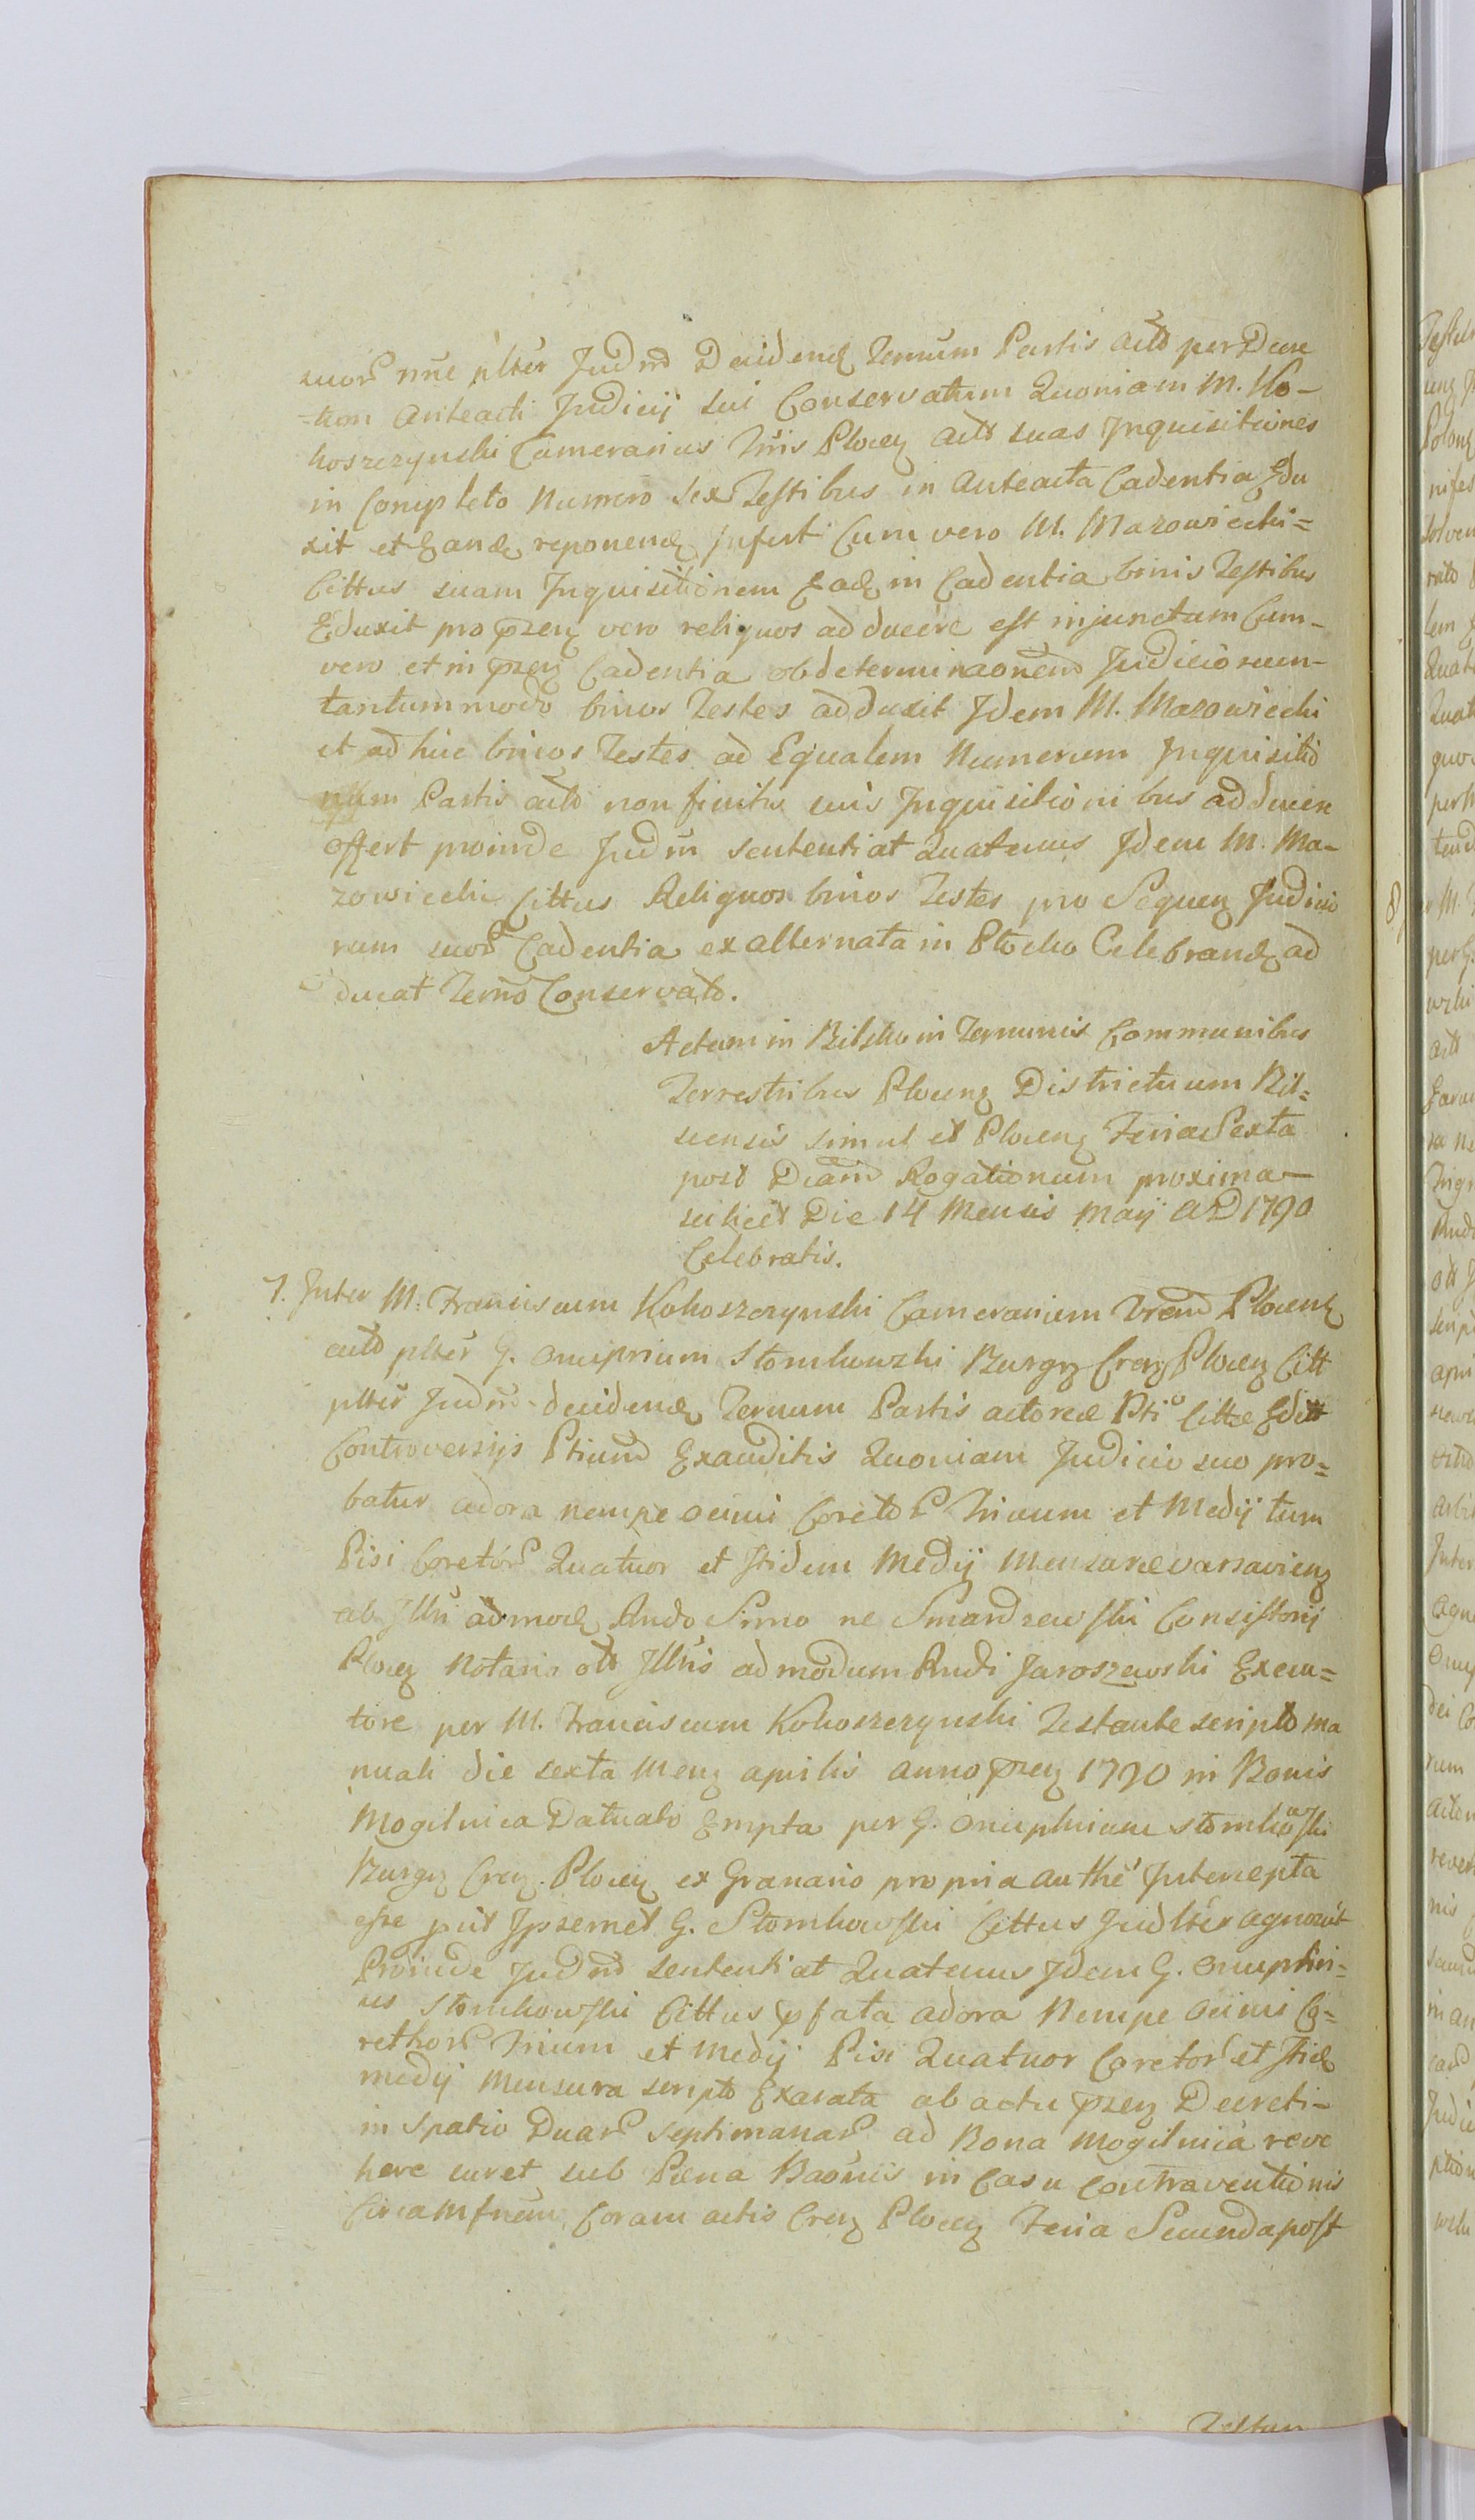 suor nūc plter Judm Decidend Termum Partis actō per Decre
=tum Anteacti Judicij sui Conservatum Quoniam M. Ko-
koszczynski Camerarius Tris Plocen actō suas Inquisitiones
in Completo Numero Sex Testibus in Anteacta Cadentia Edu
xit et Eand reponend infert Cum vero M. Mazowiecki=
Cittus suam Inquisitionem Ead in Cadentia binis Testibus
Eduxit pro przen vero reliquos adducere est injunctum Cum-
vero et in przen Cadentia ob determinaonem Judicio rum-
tantummodo binos Testes adduxit Idem M. Mazowiecki
et adhuc binos Testes ad Equalem Numerum Inquisitio
num Partis actō non finitis suis Inquisitionibus adducere
offert proinde Judm sententiat Quatenus Idem M. Ma-
zowiecki Cittus Reliquos binos Testes pro Sequen Judicio
rum suor Cadentia ex alternata in Plocko Celebrand ad
ducat Termo Conservato.
Actum in Bilsko in Terminis Communibus
Terrestribus Plocens Districtuum Bil=
scensis simul et Plocens Feria Sexta
post Diam Rogationum proxima-
scilicet Die 14 Mensis Maij AD 1790
Celebratis.
1. Inter M. Franciscum Kokoszczynski Camerarium Trem Plocens
actō plter G. Onuprium Slomkowski Burgr Cren Plocen Citt
plter Judm decidend Termum Partis actoreæ Pti Cittæ Editt
Controversijs Ptium Exauditis Quoniam Judicio suo pro=
batur adora nempe ocimi Coretor Trium et Medij tum
Pisi Coretor Quatuor et Itidem Medij Mensuræ varsavien
ab Illri admod Rndo Simo ne Smardzewski Consistorij
Plocen Notario ott Illris admodum Rndi Jaroszewski Execu=
tore per M. Franciscum Kokoszczynski Testante scripto ma
nuali die sexta Mens aprilis anno przen 1790 in Bonis
Mogilnica Datuato Empta per G. Onuphrium Slomkowski
Burgr Cren Plocen ex Granario propria authe Intercepta
esse put Ipsemet G. Slomkowski Cittus Judlter agnovit
Proinde Judm sententiat Quatenus Idem G. Onuphri=
us Slomkowski Cittus pfata adora Nempe ocimi Co=
rethor Trium et Medij Pisi Quatuor Coretor et Itid
medij Mensura scripto Exarata ab actu przen Decreti-
in Spatio Duar Septimanar ad Bona Mogilnica reve
here curet sub Pæna Baonis in Casu Contraventionis
Circa Mfnem Coram actis Cren Plocen Feria Secunda post